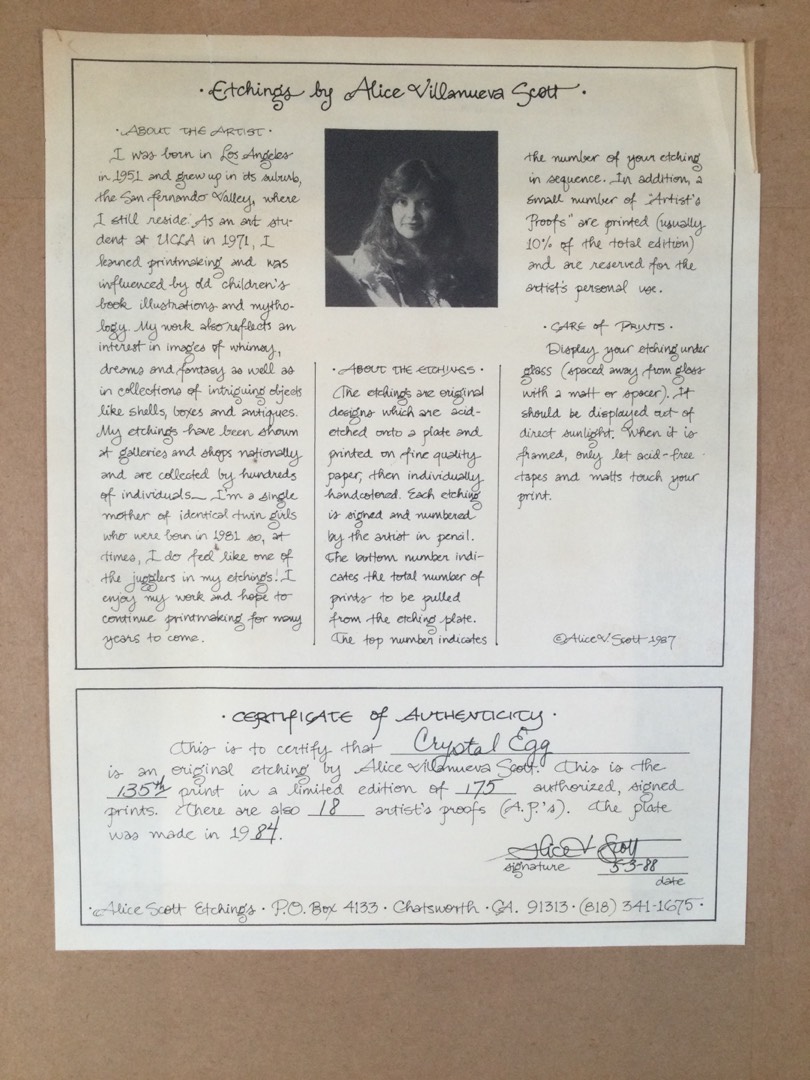 · Etchings by Alice Villanueva Scott ·
· ABOUT THE ARTIST ·
I was born in Los Angeles
in 1951 and grew up in its suburb,
the San Fernando Valley, where
I still reside. As an art stu-
dent at UCLA in 1971, I
learned printmaking and was
influenced by old children's
book illustrations and mytho-
logy. My work also reflects an
interest in images of whimsy,
dreams and fantasy as well as
in collections of intriguing objects
like shells, boxes and antiques.
My etchings have been shown
at galleries and shops nationally
and are collected by hundreds
of individuals. I'm a single
mother of identical twin girls
who were born in 1981 so, at
times, I do feel like one of
the jugglers in my etchings! I
enjoy my work and hope to
continue printmaking for many
years to come.
· ABOUT THE ETCHINGS ·
The etchings are original
designs which are acid-
etched onto a plate and
printed on fine quality
paper, then individually
handcolored. Each etching
is signed and numbered
by the artist in pencil.
The bottom number indi-
cates the total number of
prints to be pulled
from the etching plate.
The top number indicates
the number of your etching
in sequence. In addition, a
small number of "Artist's
Proofs" are printed (usually
10% of the total edition)
and are reserved for the
artist's personal use.
· CARE of PRINTS ·
Display your etching under
glass (spaced away from glass
with a matt or spacer). It
should be displayed out of
direct sunlight. When it is
framed, only let acid-free
tapes and matts touch your
print.
©Alice V Scott 1987
· CERTIFICATE of AUTHENTICITY ·
This is to certify that Crystal Egg
is an original etching by Alice Villanueva Scott. This is the
135th print in a limited edition of 175 authorized, signed
prints. There are also 18 artist's proofs (A.P.'s). The plate
was made in 1984.
Alice V Scott
signature 5-3-88
date
· Alice Scott Etchings · P.O. Box 4133 · Chatsworth · CA. 91313 · (818) 341-1675 ·